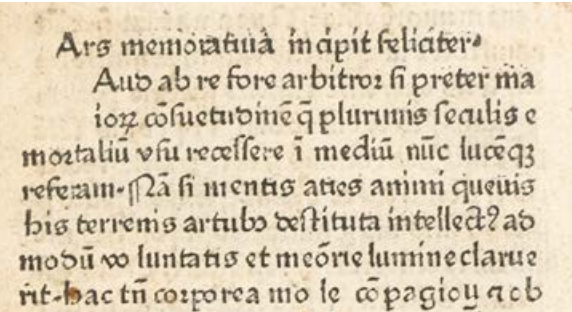 Ars memoratiua incipit feliciter.
Aud ab re fore arbitror si preter ma
ioꝝ cōsuetudinē q̄ plurimis seculis e
mortaliū vsu recessere ī mediū nūc lucēqꝫ
referam. Nā si mentis acies animi queuis
his terrenis artubꝰ destituta intellectꝰ ad
modū vo luntatis et meōrie lumine clarue
rit. hac tn̄ corporea mo le cōpagiou ⁊ ob